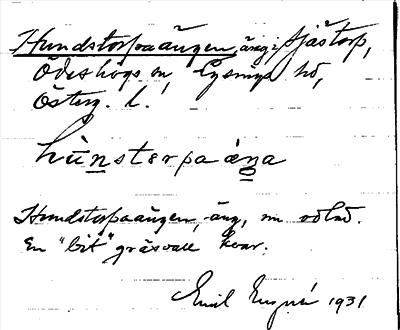 Hundstorpaängen, äng i Sjästorp,
Ödeshögs sn, Lysings hd,
Österg. l.
hùnsterpaáŋa
Hundstorpaängen, äng, nu odlad.
En "bit" gräsvall kvar.
Emil 1931